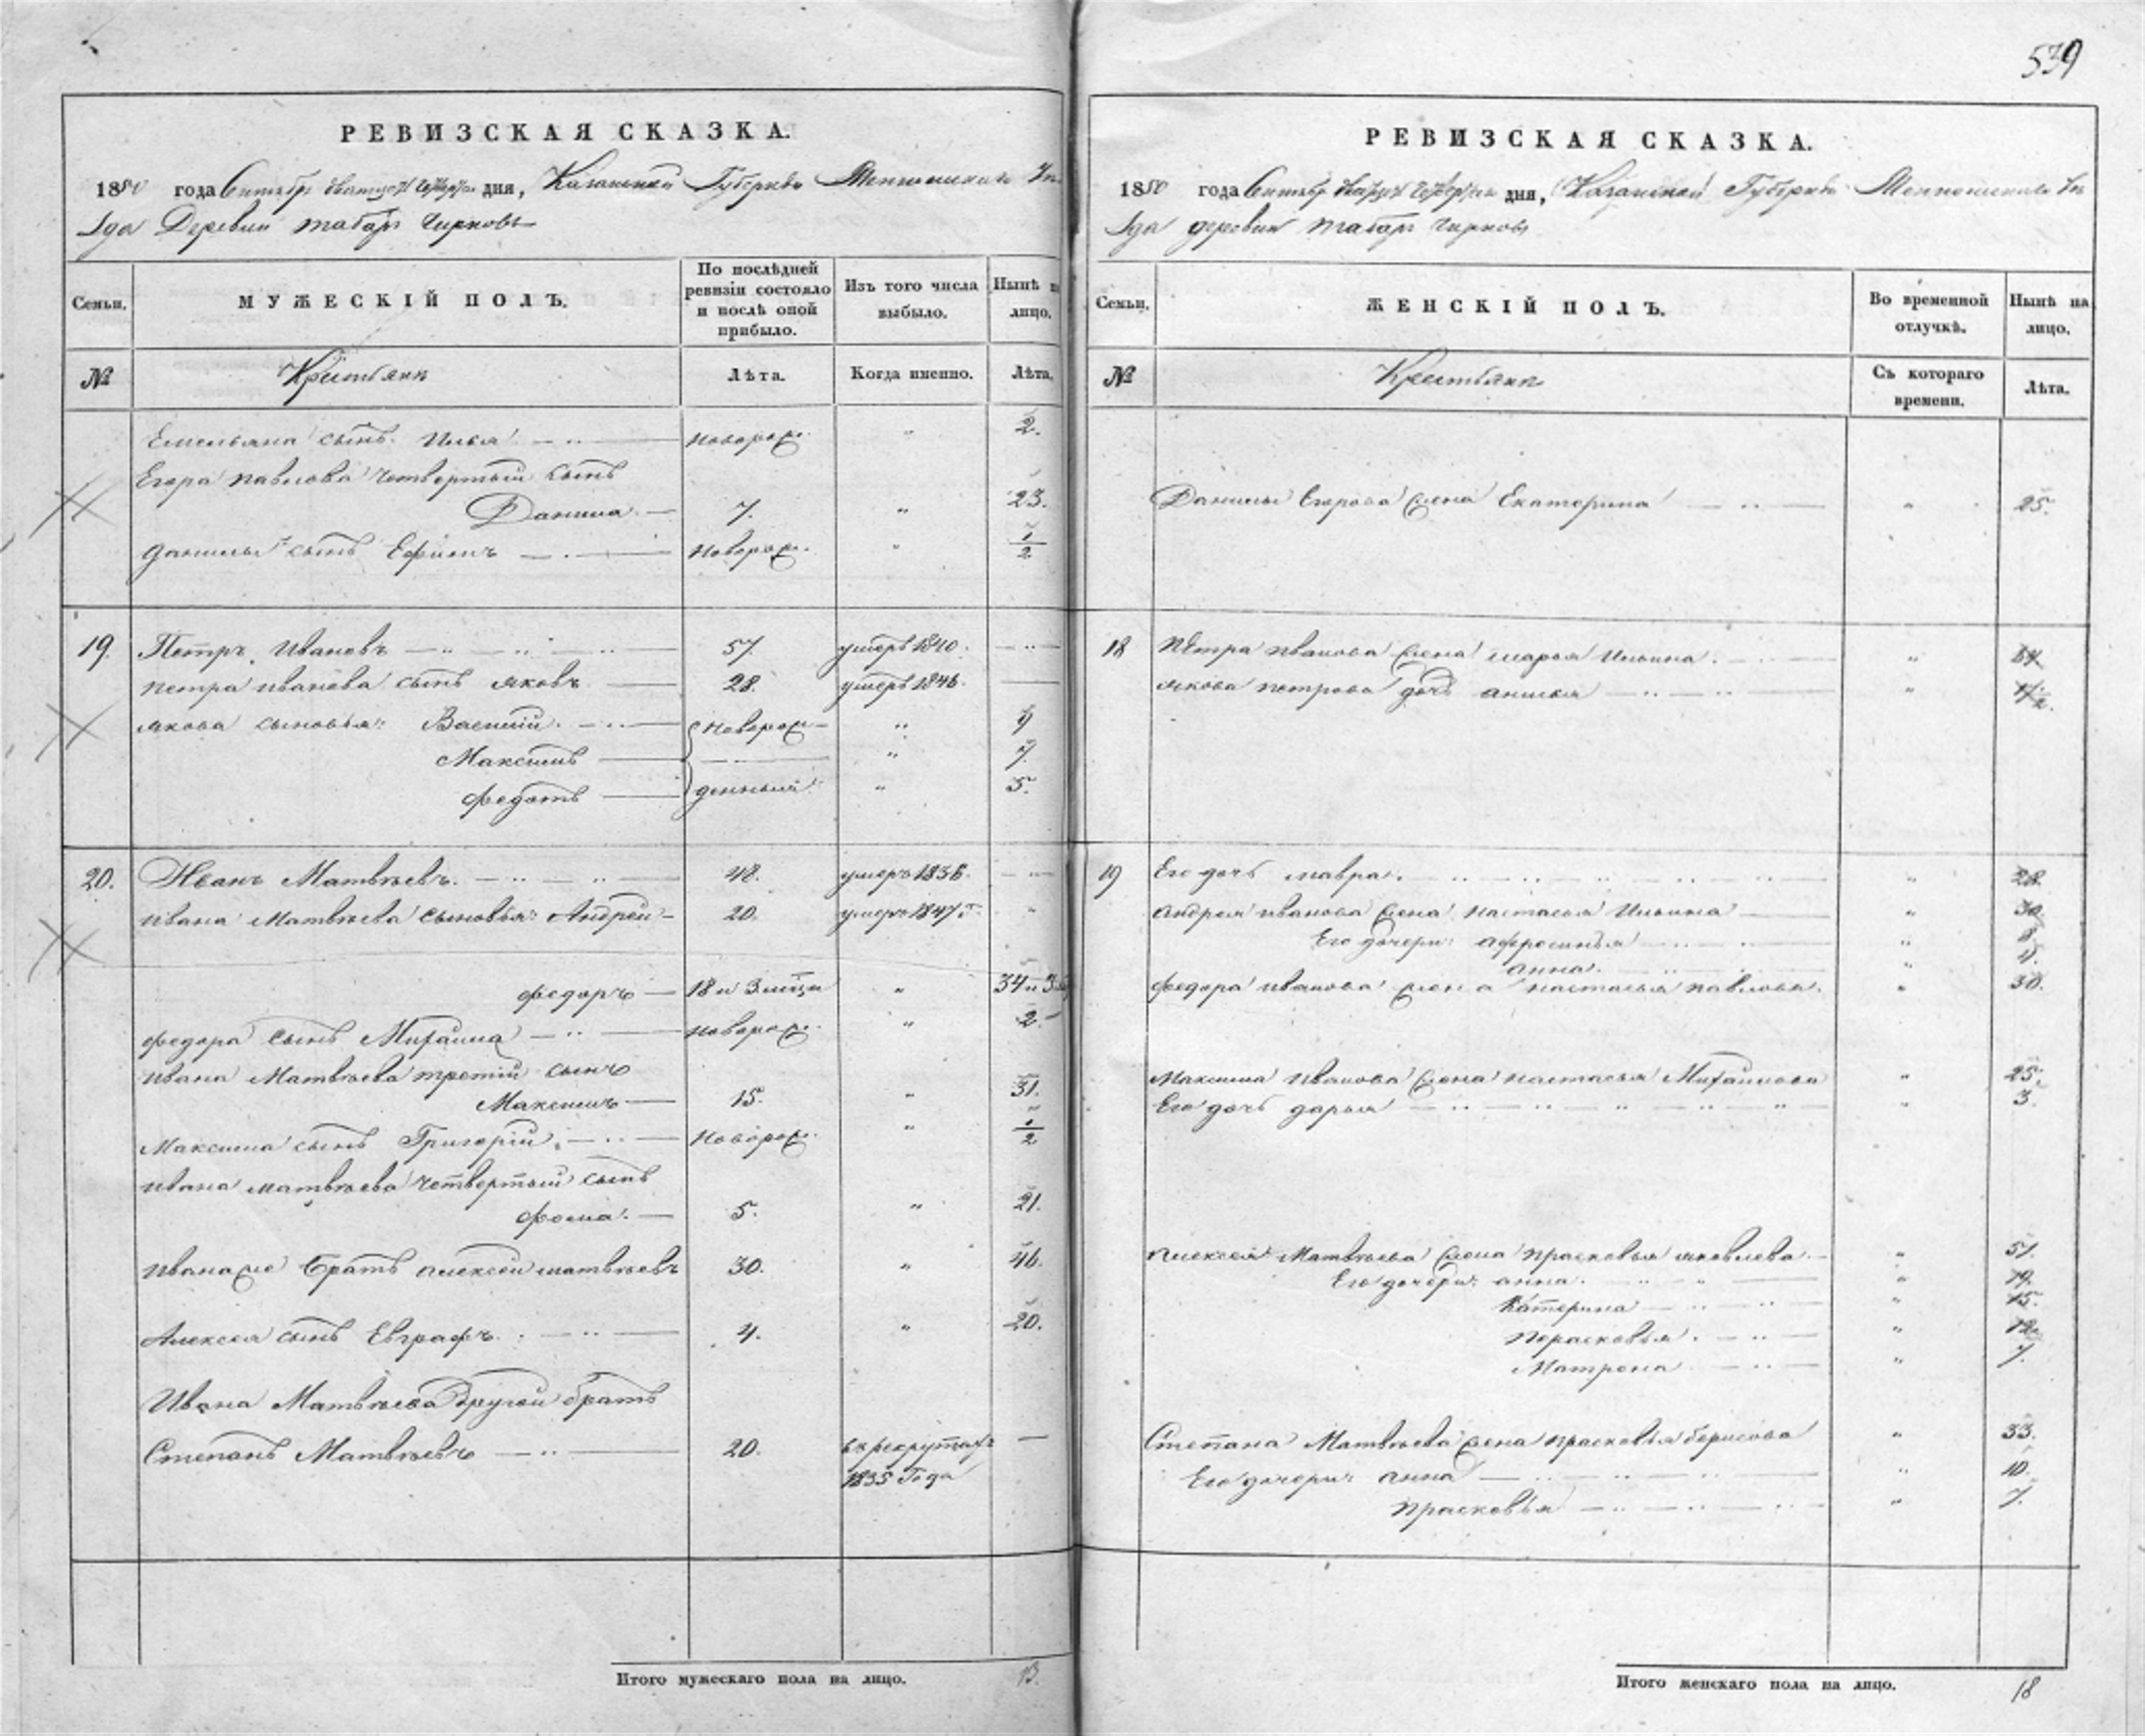 539
РЕВИЗСКАЯ СКАЗКА.
1850 года дня, Казанской Губернiи
ѣзда Деревни табарь Чирковъ
Семьи.
МУЖЕСКІЙ ПОЛЪ.
По послѣдней ревизіи состояло и послѣ оной прибыло.
Изъ того числа выбыло.
Нынѣ на лицо.
№
Крестьяне
Лѣта.
Когда именно.
Лѣта.
Емельяна сынъ Илья новорож. " 2.
Егора павлова четвертый сынъ
Данила 7. " 23.
Данилы сынъ Ефимъ новорож. " 1/2
19. Петръ Ивановъ 57. умеръ 1840.
петра иванова сынъ яковъ 28. умеръ 1846.
якова сыновья: Василій новорож- " 9
Максимъ " 7.
федотъ денныя " 5.
20. Иванъ Матвѣевъ. 48. умеръ 1836.
ивана Матвѣева сыновья: Андрей 20. умеръ 1847. "
федоръ 18 и 3 мѣся " 34 и 3
федора сынъ Михайла новорож. " 2.
ивана Матвѣева третій сынъ
Максимъ 15. " 31.
Максима сынъ Григорій новорож. " 1/2
ивана матвѣева четвертый сынъ
фома. 5. " 21.
Иванаже братъ алексей матвѣевъ 30. " 46.
Алексея сынъ Евграфъ 4. " 20.
Ивана Матвѣева другой братъ
Степанъ Матвѣевъ 20. въ рекрутахъ
1835 Года
Итого мужескаго пола на лицо. 13.
РЕВИЗСКАЯ СКАЗКА.
1850 года дня, Казанской Губернiи
ѣзда деревни табарь чирковъ
Семьи.
ЖЕНСКІЙ ПОЛЪ.
Во временной отлучкѣ.
Нынѣ на лицо.
№
Крестьяне
Съ котораго времени.
Лѣта.
Данилы Егорова жена Екатерина " 25.
18 Петра иванова жена марья Ильина. " 64
якова петрова дочь анисья "
19 Его дочь мавра. " 28.
Андрея иванова жена настасья Ильина " 30.
Его дочери: афросинья " 8.
анна. " 4.
федора иванова жена настасья павлова. " 30.
Максима Иванова жена настасья Михаилова " 25.
Его дочь дарья " 3.
Алексея Матвѣева жена прасковья яковлева. " 51.
Его дочери: анна. " 19.
Катерина " 15.
Парасковья. " 12.
Матрена " 7.
Степана Матвѣева жена прасковья борисова " 33.
Его дочери: анна " 10.
прасковья " 7.
Итого женскаго пола на лицо. 18